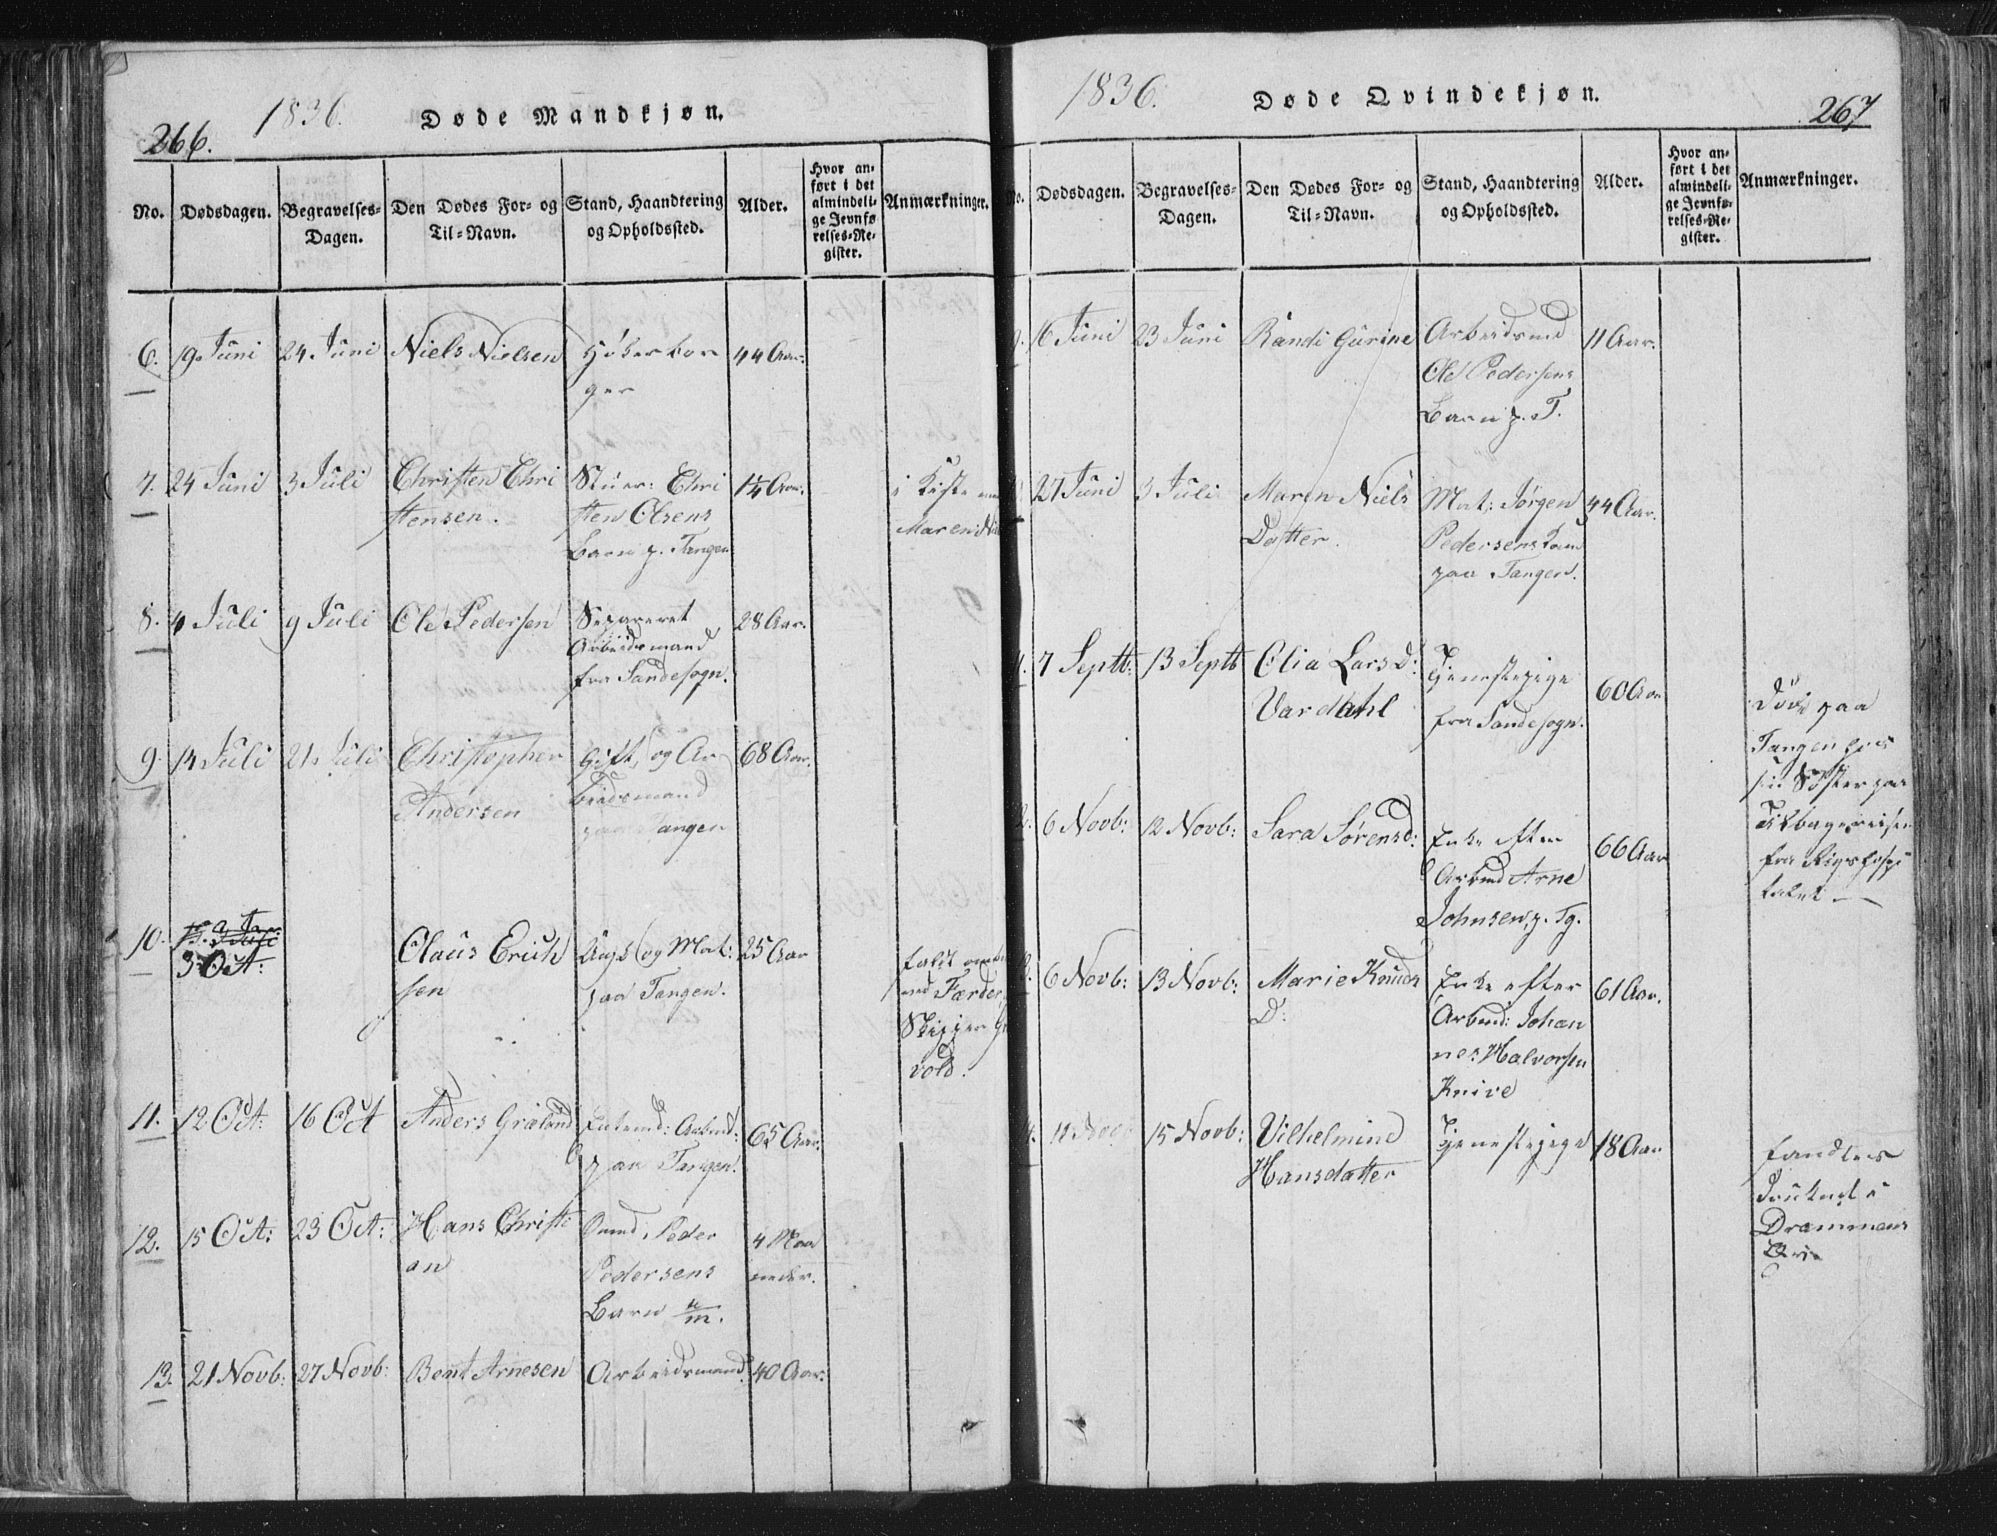 266.
1836.
Døde Mandkjøn.
No.
Dødsdagen.
Begravelses-
Dagen.
Den Dødes For- og
Til-Navn.
Stand, Haandtering
og Opholdssted.
Alder.
Hvor an-
ført i det
almindeli-
ge Jevnfø-
relses-Re-
gister.
Anmærkninger.
6. 19 Juni 24 Juni Niels Nielsen Høkerbor 44 Aar.
ger
7. 24 Juni 3 Juli Christen Chri
stensen.
Stuer: Chri
sten Olsens
Barn p. Tangen
1¼ Aar.
i Kiste
Maren
8. 4 Juli 9 Juli Ole Pedersen Separeret 28 Aar.
Arbeidsmand
fra Sandesogn.
9. 14 Juli 21 Juli Christopher
Andersen
Gift, og Ar
beidsmand
paa Tangen
68 Aar.
10.
3 Oct:
Claus Erich
sen
Ungk. og Mat:
paa Tangen.
25 Aar
faldt
Færder,
Skipper
vold.
11. 12 Oct: 16 Oct Anders Graland
Arbmd:
paa Tangen.
65 Aar.
12. 15 Oct: 23 Oct: Hans Christi
an
Peder
Pedersens
Barn
4 Maa
neder.
13. 21 Novb: 27 Novb: Bent Arnesen Arbeidsmand 40 Aar.
1836.
Døde Qvindekjøn.
267
No.
Dødsdagen.
Begravelses-
Dagen.
Den Dødes For- og
Til-Navn.
Stand, Haandtering
og Opholdssted.
Alder.
Hvor an-
ført i det
almindeli-
ge Jevnfø-
relses-Re-
gister.
Anmærkninger.
16 Juni 23 Juni Randi Gurine Arbeidsmd 11 Aar.
Ole Pedersens
Barn p. T.
27 Juni 3 Juli Maren Niels
Datter.
Mat: Jørgen
Pedersens Kone
paa Tangen.
44 Aar.
7 Septb: 13 Septb Olia Lars D:
Vardahl
Tjenestepige
fra Sandesogn.
60 Aar
Døde paa
Tangen hos
sin Søster paa
Tilbagereisen
fra Rigshospi
talet
6 Novb: 12 Novb: Sara Sørensd:
Enke efter
Arbmd Arne
Johnsen, p. Tg.
66 Aar
6 Novb: 13 Novb: Marie Knuds
D:
Enke efter
Arbmd: Johan
nes Halvorsen
Knive
61 Aar.
11 15 Novb: Vilhelmine
Hansdatter
Tjenestepige 18 Aar
fandtes
druknet i
Drammens
Elv